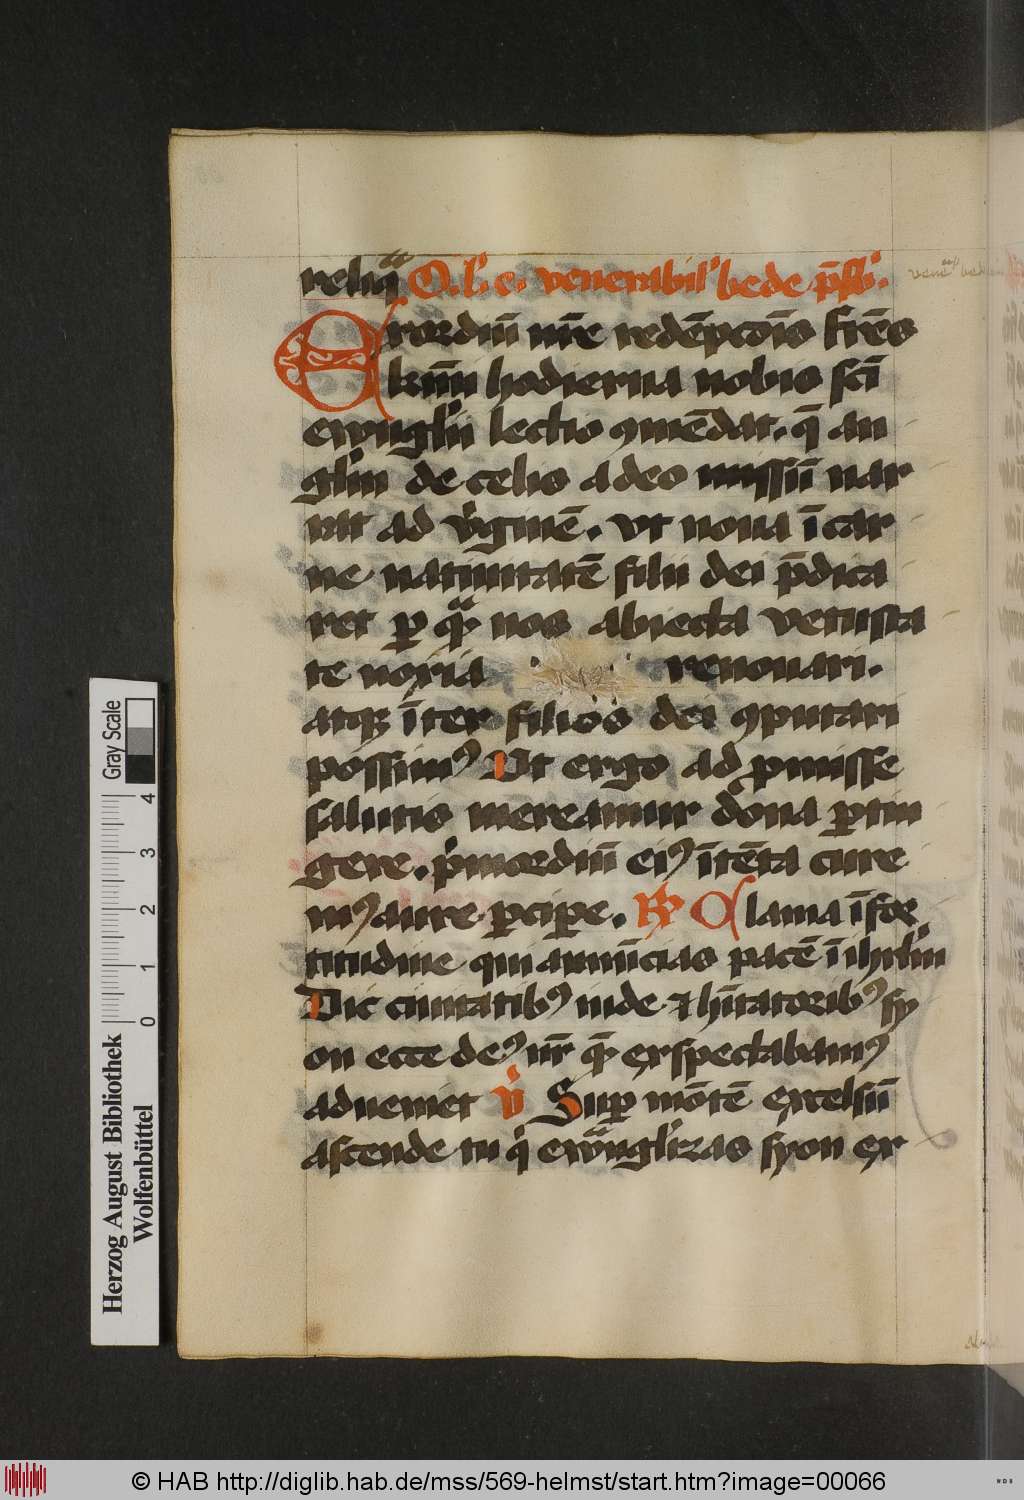 reliqᷓ O. l'. e. venerabil' bede p̄sb'.
Exordiū nr̄e redēpcōis fr̄es
kr̄mi hodierna nobis sc̄i
ewᷓngl'ii lectio ꝯmēdat. q̄ an
gl'm de celis a deo missū nar
rat ad v'ginē. vt noua ī car
ne natiuitatē filii dei p̄dica
ret ꝑ qᷓ nos abiecta vetusta
te noxia renouari.
atqꝫ īter filios dei ꝯputari
possimꝰ Ut ergo ad ꝓmisse
salutis mereamur dōna ꝑtin
gere. p'mordiū eiꝰ ītēta cure
mꝰ aure ꝑcipe. R̷ Clama ī for
titudine qui annūcias pacē ī ihrl'm
Dic ciuitatibꝰ iude ⁊ hītatoribꝰ sy
on ecce deꝰ nr̄ quē exspectabamꝰ
adueniet v̓ Suꝑ mōtē excelsū
ascende tu q' ewᷓngl'izas syon ex
Herzog August Bibliothek
Wolfenbüttel
Gray Scale
0 1 2 3 4
© HAB http://diglib.hab.de/mss/569-helmst/start.htm?image=00066